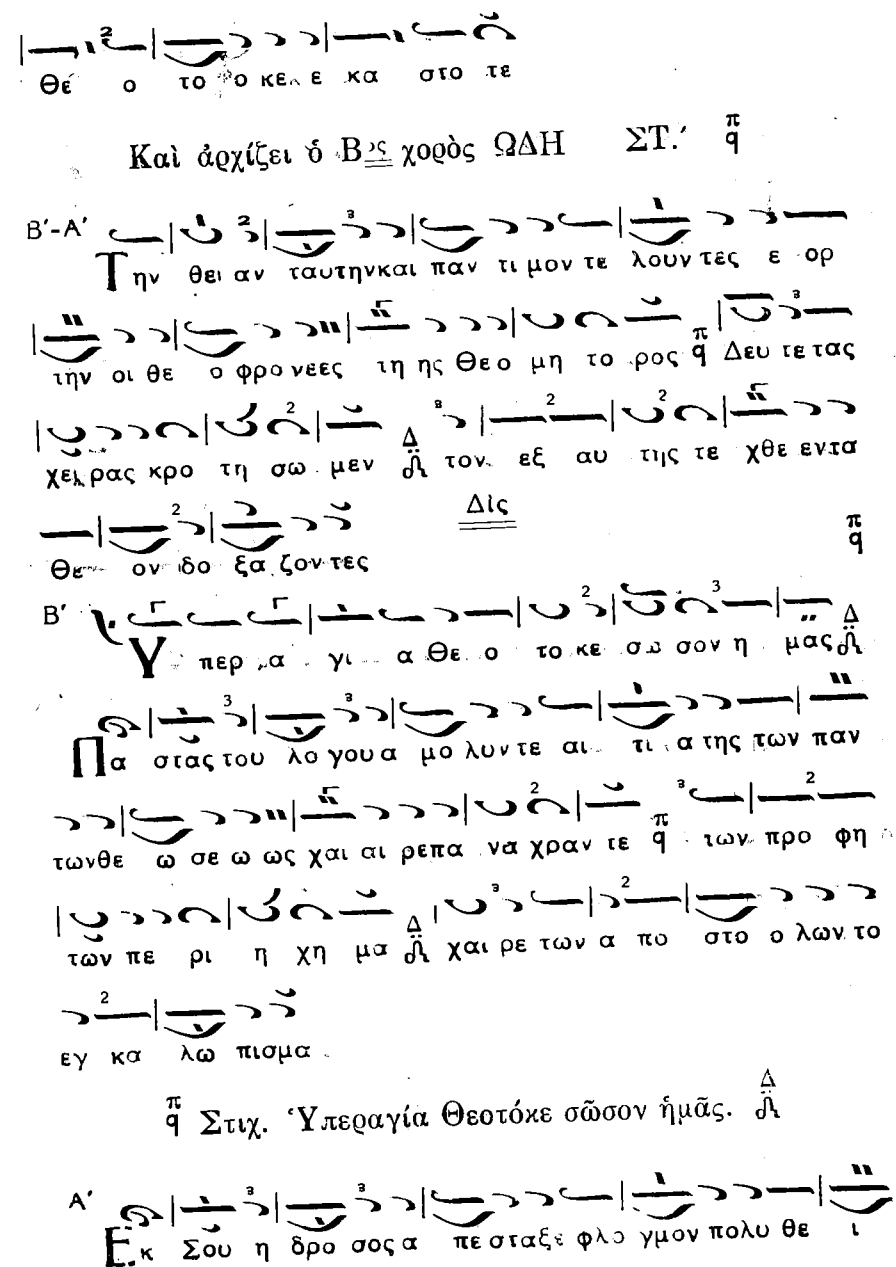 Θε ο το ο κε ε κα στο τε
Καὶ ἀρχίζει ὁ Βος χορὸς ΩΔΗ ΣΤ.΄ π q
Β΄-Α΄
Την θει αν ταυτηνκαι παν τι μον τε λουν τες ε ορ
την οι θε ο φρο νεες τη ης Θεο μη το ρος π q Δευ τε τας
χει ρας κρο τη σω μεν Δ τον εξ αυ της τε χθε εντα
Δὶς
Θε ον δο ξα ζον τες π q
Β΄
Υ περ α γι α Θε ο το κε σω σον η μας Δ
Πα στας του λο γου α μο λυν τε αι τι α της των παν
τωνθε ω σε ω ως χαι αι ρεπα να χραν τε π q των προ φη
των πε ρι η χη μα Δ χαι ρε των α πο στο ο λων το
εγ κα λω πισμα
π q Στιχ. Ὑπεραγία Θεοτόκε σῶσον ἡμᾶς. Δ
Α΄
Εκ Σου η δρο σος α πε σταξε φλο γμον πολυ θε ι